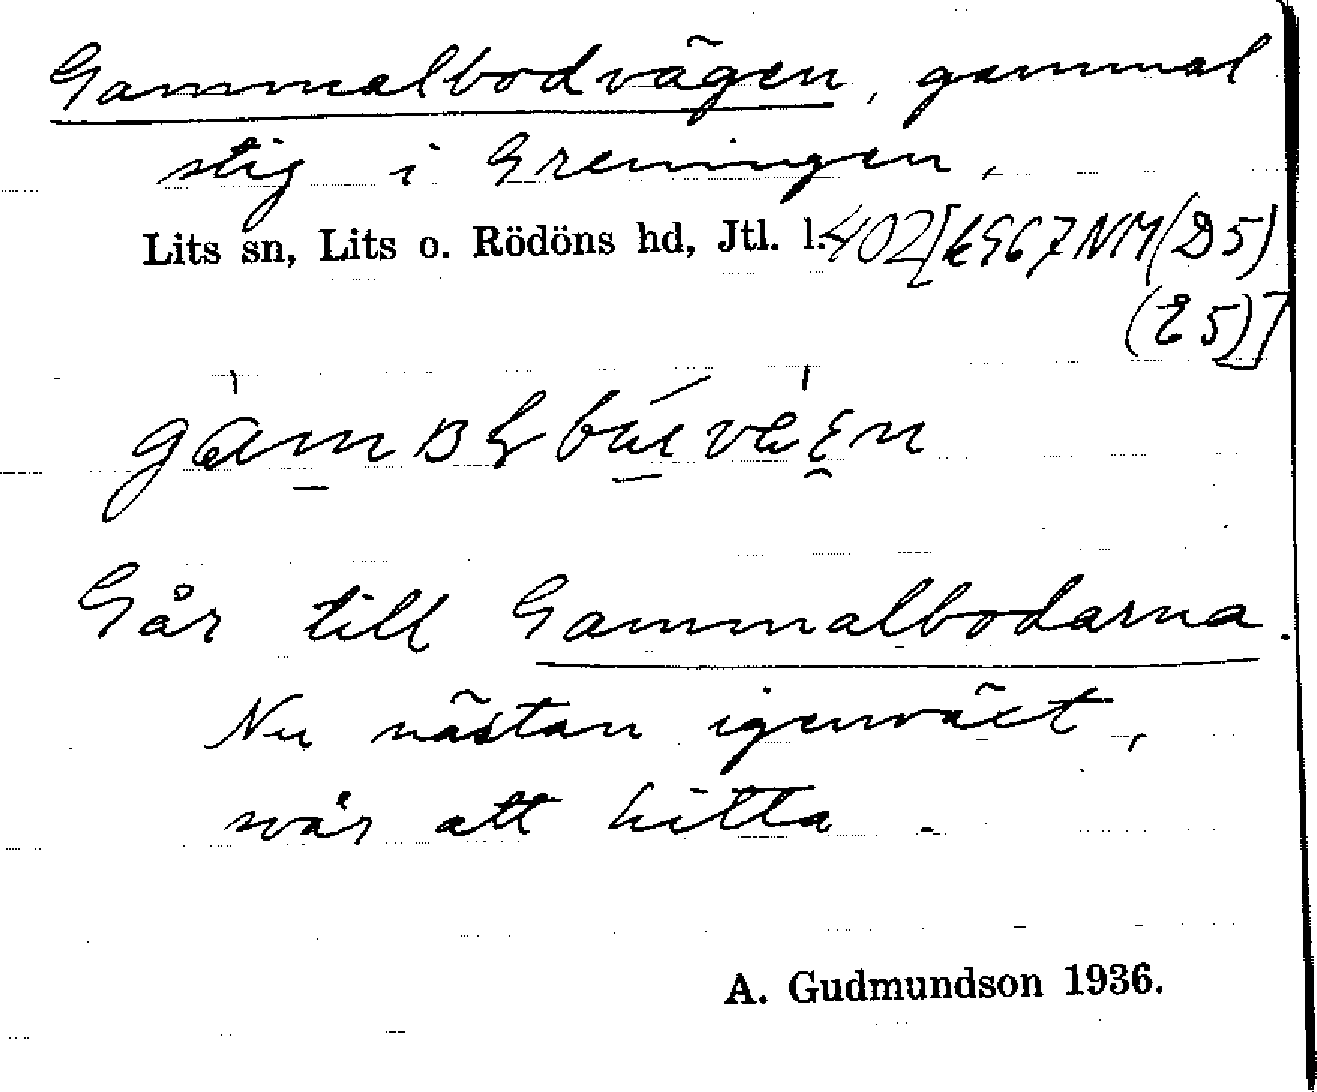 Gammalbodvägen, gammal
stig i Greningen.
Lits sn, Lits o. Rödöns hd, Jtl. l. 402 [6967 NM (D5)
(E5)]
Går till Gammalbodarna.
Nu nästan igenväxt,
svår att hitta.
A. Gudmundson 1936.